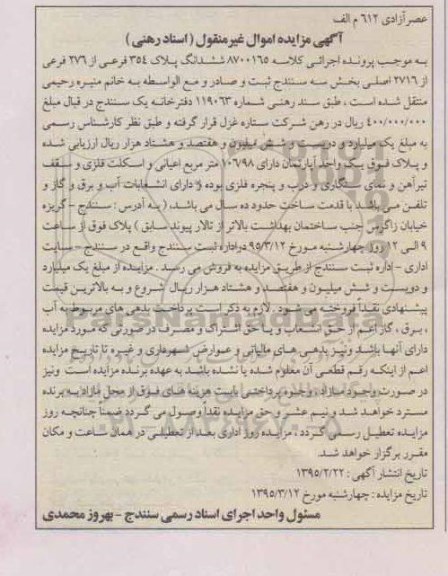 عصر آزادی ۶۱۲ م الف
آگهی مزایده اموال غیر منقول (اسناد رهنی)
به موجب پرونده اجرائی کلاسه ۸۷۰۰۱۶۵ ششدانگ پلاک ۳۵۴ فرعی از ۲۷۶ فرعی
از ۲۷۱۶ اصلی بخش سه سنندج ثبت و صادر و مع الواسطه به خانم منیره رحیمی
منتقل شده است ، طبق سند رهنی شماره ۱۱۹۰۶۳ دفترخانه یک سنندج در قبال مبلغ
۴۰۰/۰۰۰/۰۰۰ ریال در رهن شرکت ستاره غزل قرار گرفته و طبق نظر کارشناس رسمی
به مبلغ یک میلیارد و دویست و شش میلیون و هفتصد و هشتاد هزار ریال ارزیابی شده
و پلاک فوق یک واحد آپارتمان دارای ۱۰۶/۹۸ متر مربع اعیانی و اسکلت فلزی و سقف
تیرآهن و نمای سنگکاری و درب و پنجره فلزی بوده و دارای انشعابات آب و برق و گاز و
تلفن می باشد با قدمت ساخت حدود ده سال می باشد، ( به آدرس : سنندج - گریزه
خیابان زاگرس جنب ساختمان بهداشت بالاتر از تالار پیوند سابق ) پلاک فوق از ساعت
۹ الی ۱۲ روز چهارشنبه مورخ ۹۵/۳/۱۲ در اداره ثبت سنندج واقع در سنندج - سایت
اداری - اداره ثبت سنندج از طریق مزایده به فروش می رسد . مزایده از مبلغ یک میلیارد
و دویست و شش میلیون و هفتصد و هشتاد هزار ریال شروع و به بالاترین قیمت
پیشنهادی نقداً فروخته می شود . لازم به ذکر است پرداخت بدهی های مربوط به آب
، برق ، گاز اعم از حق انشعاب و یا حق اشتراک و مصرف در صورتی که مورد مزایده
دارای آنها باشد و نیز بدهی های مالیاتی و عوارض شهرداری و غیره تا تاریخ مزایده
اعم از اینکه رقم قطعی آن معلوم شده یا نشده باشد به عهده برنده مزایده است ونیز
در صورت وجود مازاد، وجوه پرداختی بابت هزینه های فوق از محل مازاد به برنده
مسترد خواهد شد و نیم عشر و حق مزایده نقدا وصول می گردد ضمنا چنانچه روز
مزایده تعطیل رسمی گردد ، مزایده روز اداری بعد از تعطیلی در همان ساعت و مکان
مقرر برگزار خواهد شد.
تاریخ انتشار آگهی : ۱۳۹۵/۲/۲۲
تاریخ مزایده : چهارشنبه مورخ ۱۳۹۵/۳/۱۲
مسئول واحد اجرای اسناد رسمی سنندج - بهروز محمدی